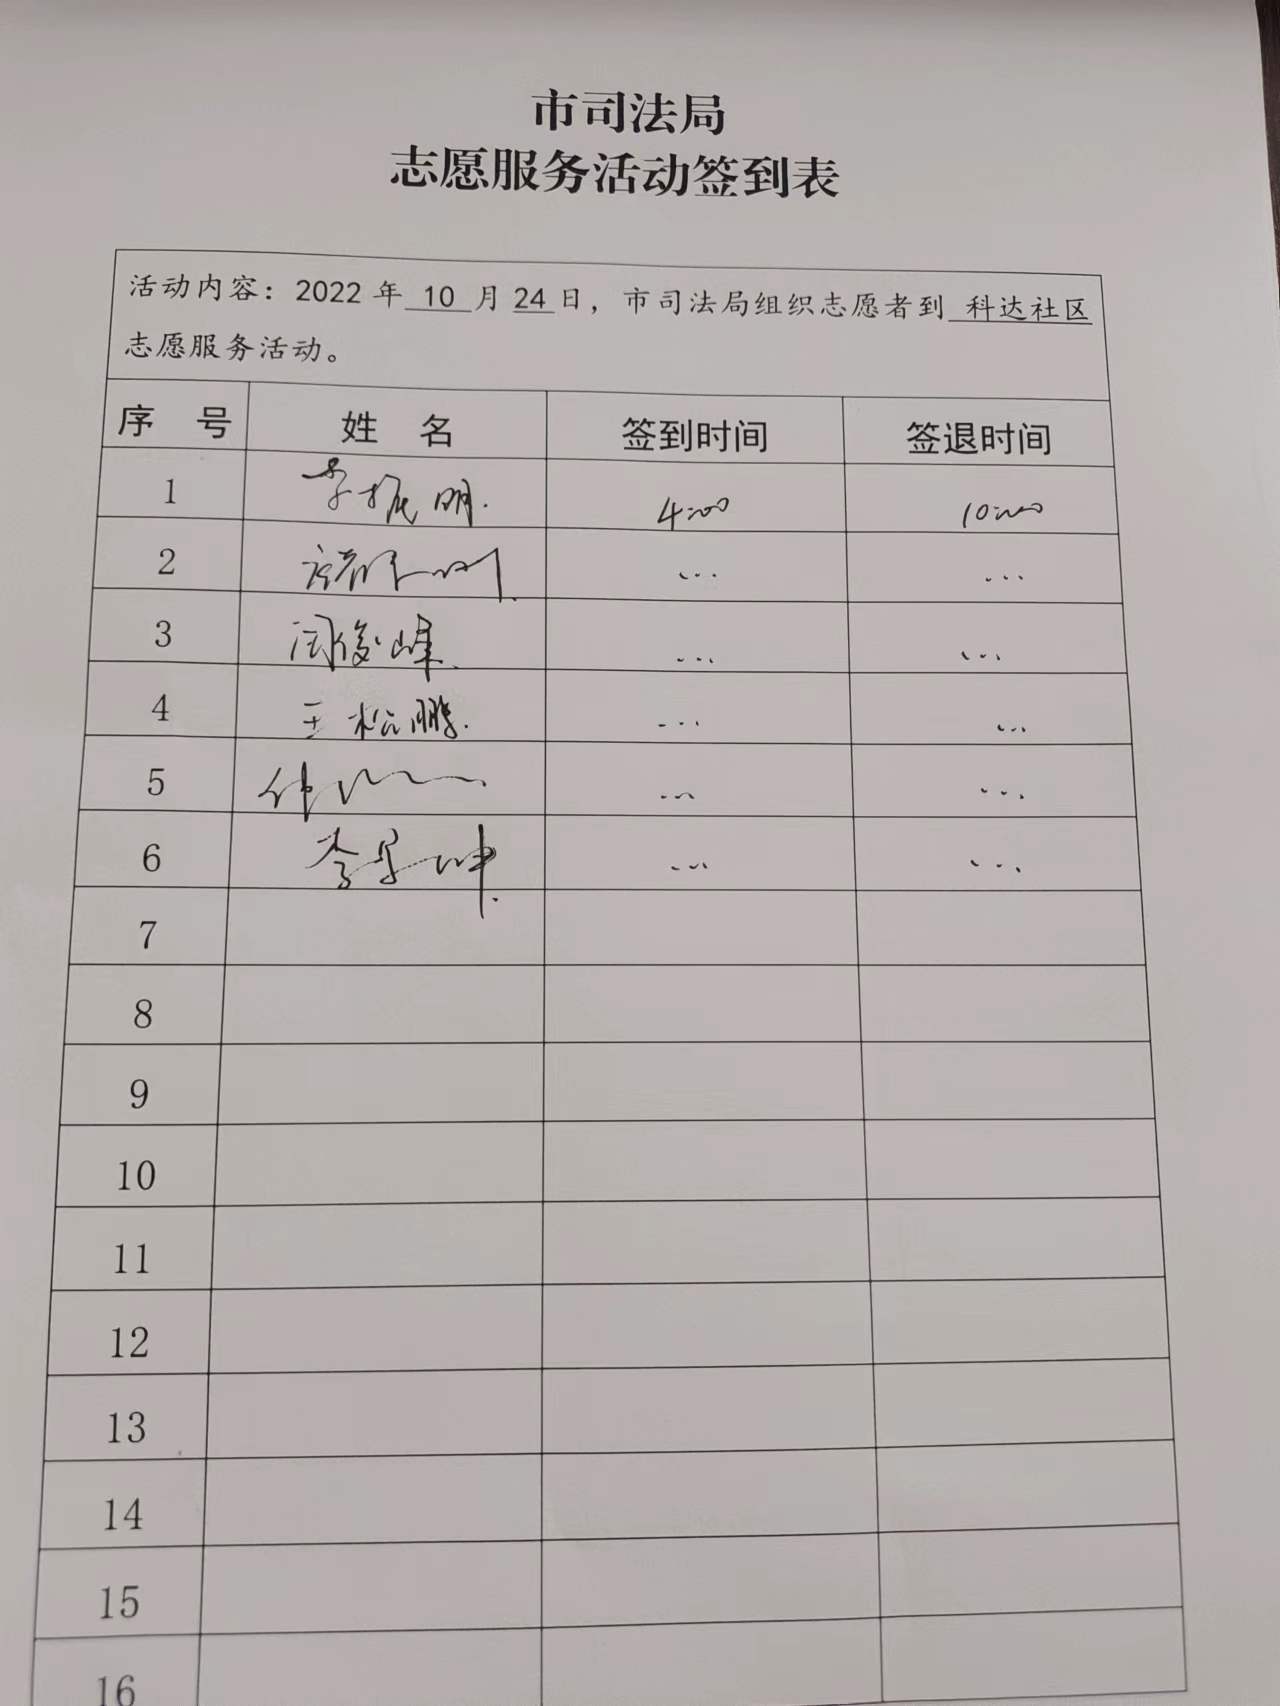 市司法局
志愿服务活动签到表
活动内容：2022 年 10 月 24 日，市司法局组织志愿者到 科达社区
志愿服务活动。
序 号 姓 名 签到时间 签退时间
1 李振明. 4:00 10:00
2 ... ...
3 闫俊峰. ... ...
4 王松鹏. ... ...
5 ... ...
6 李 坤. ... ...
7
8
9
10
11
12
13
14
15
16